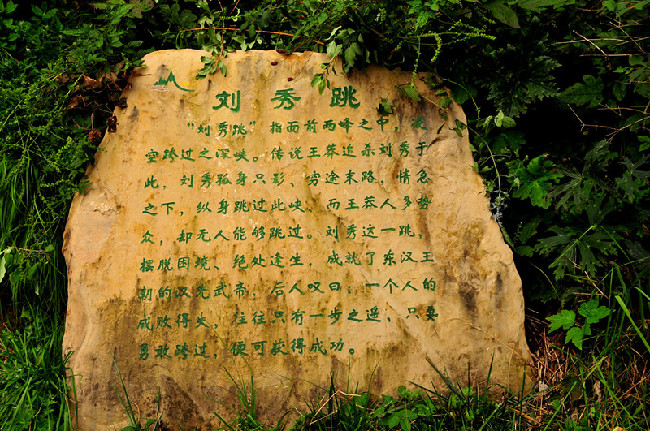 刘秀跳
"刘秀跳"指面前两峰之中,
空跨过之深峡。传说王莽追杀刘秀于
此,刘秀孤身只影、穷途末路,情急
之下,纵身跳过此峡,而王莽人多势
众,却无人能够跳过。刘秀这一跳,
摆脱困境、绝处逢生,成就了东汉王
朝的汉光武帝,后人叹曰:一个人的
成败得失,往往只有一步之遥,只要
勇敢跨过,便可获得成功。